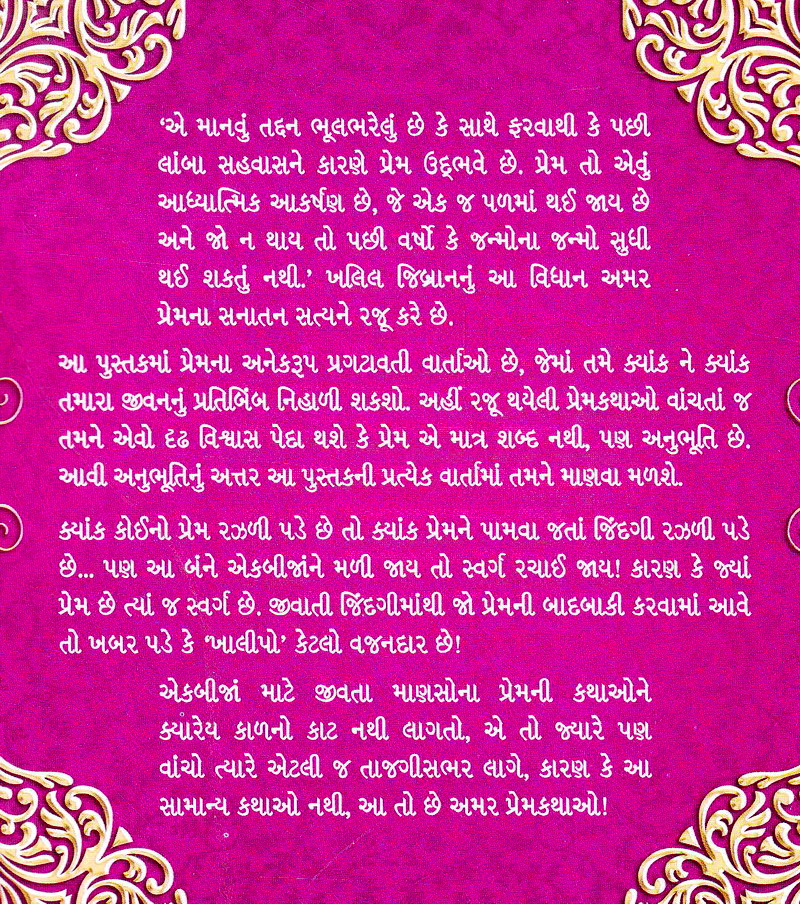 ‘એ માનવું તદ્દન ભૂલભરેલું છે કે સાથે ફરવાથી કે પછી
લાંબા સહવાસને કારણે પ્રેમ ઉદ્ભવે છે. પ્રેમ તો એવું
આધ્યાત્મિક આકર્ષણ છે, જે એક જ પળમાં થઈ જાય છે
અને જો ન થાય તો પછી વર્ષો કે જન્મોના જન્મો સુધી
થઈ શકતું નથી.’ ખલિલ જિબ્રાનનું આ વિધાન અમર
પ્રેમના સનાતન સત્યને રજૂ કરે છે.
આ પુસ્તકમાં પ્રેમના અનેકરૂપ પ્રગટાવતી વાર્તાઓ છે, જેમાં તમે ક્યાંક ને ક્યાંક
તમારા જીવનનું પ્રતિબિંબ નિહાળી શકશો. અહીં રજૂ થયેલી પ્રેમકથાઓ વાંચતાં જ
તમને એવો દૃઢ વિશ્વાસ પેદા થશે કે પ્રેમ એ માત્ર શબ્દ નથી, પણ અનુભૂતિ છે.
આવી અનુભૂતિનું અત્તર આ પુસ્તકની પ્રત્યેક વાર્તામાં તમને માણવા મળશે.
ક્યાંક કોઈનો પ્રેમ રઝળી પડે છે તો ક્યાંક પ્રેમને પામવા જતાં જિંદગી રઝળી પડે
છે... પણ આ બંને એકબીજાંને મળી જાય તો સ્વર્ગ રચાઈ જાય! કારણ કે જ્યાં
પ્રેમ છે ત્યાં જ સ્વર્ગ છે. જીવાતી જિંદગીમાંથી જો પ્રેમની બાદબાકી કરવામાં આવે
તો ખબર પડે કે ‘ખાલીપો’ કેટલો વજનદાર છે!
એકબીજાં માટે જીવતા માણસોના પ્રેમની કથાઓને
ક્યારેય કાળનો કાટ નથી લાગતો, એ તો જ્યારે પણ
વાંચો ત્યારે એટલી જ તાજગીસભર લાગે, કારણ કે આ
સામાન્ય કથાઓ નથી, આ તો છે અમર પ્રેમકથાઓ!